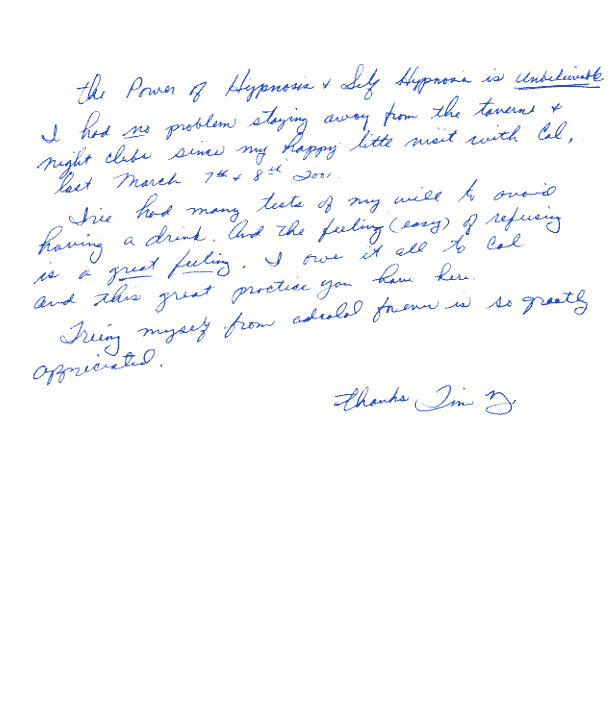 the Power of Hypnosis & Self Hypnosis is unbelievable
I had no problem staying away from the taverns &
night clubs since my happy little visit with Cal,
last March 7th & 8th 2001.
I've had many tests of my will to avoid
having a drink. And the feeling (easy) of refusing
is a great feeling. I owe it all to Cal
and this great practise you have here.
Freing myself from forever is so greatly
appreciated.
thanks Tim